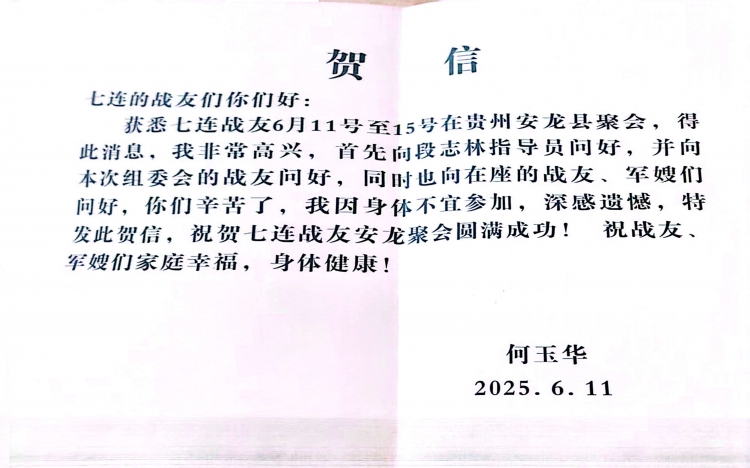 贺 信
七连的战友们你们好：
获悉七连战友6月11号至15号在贵州安龙县聚会，得
此消息，我非常高兴，首先向段志林指导员问好，并向
本次组委会的战友问好，同时也向在座的战友、军嫂们
问好，你们辛苦了，我因身体不宜参加，深感遗憾，特
发此贺信，祝贺七连战友安龙聚会圆满成功！ 祝战友、
军嫂们家庭幸福，身体健康！
何玉华
2025.6.11